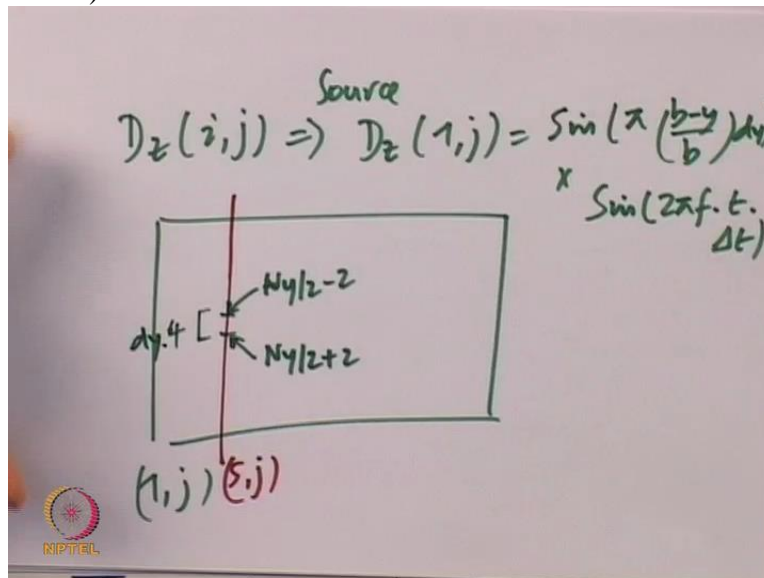 Source
D_z (i,j) => D_z (1,j) = Sin(π (b-y/b) dy
x Sin(2πf. t. Δt)
Ny/2-2
dy.4 [
Ny/2+2
(1,j) (5,j)
NPTEL